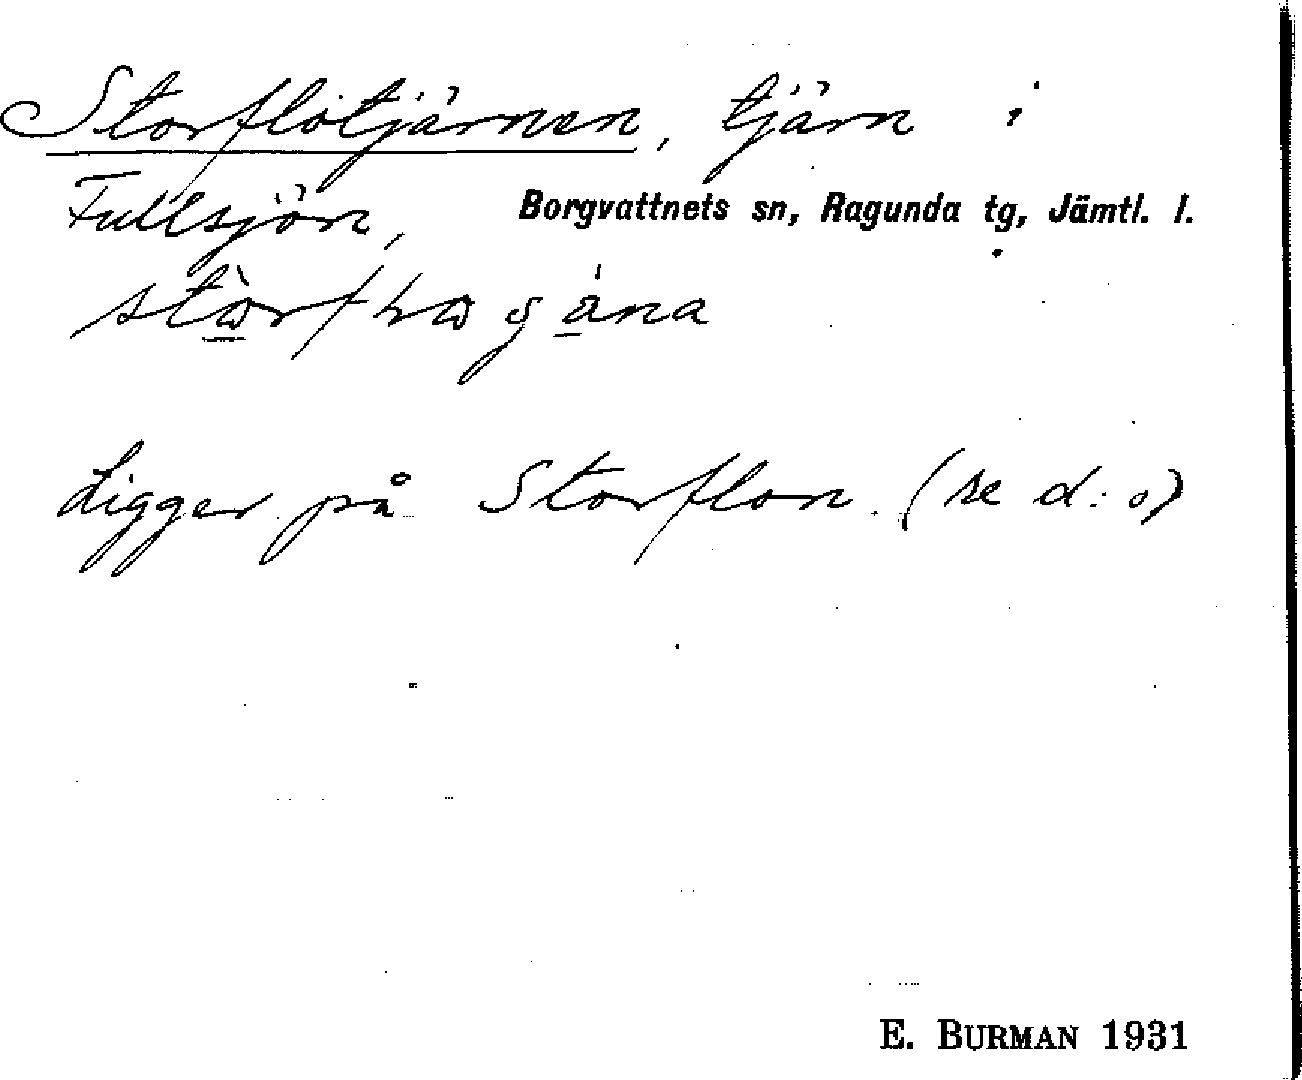 Storflotjärnen, tjärn i
Fullsjön, Borgvattnets sn, Ragunda tg, Jämtl. l.
Ligger på Storflon. (se d:o)
E. BURMAN 1931